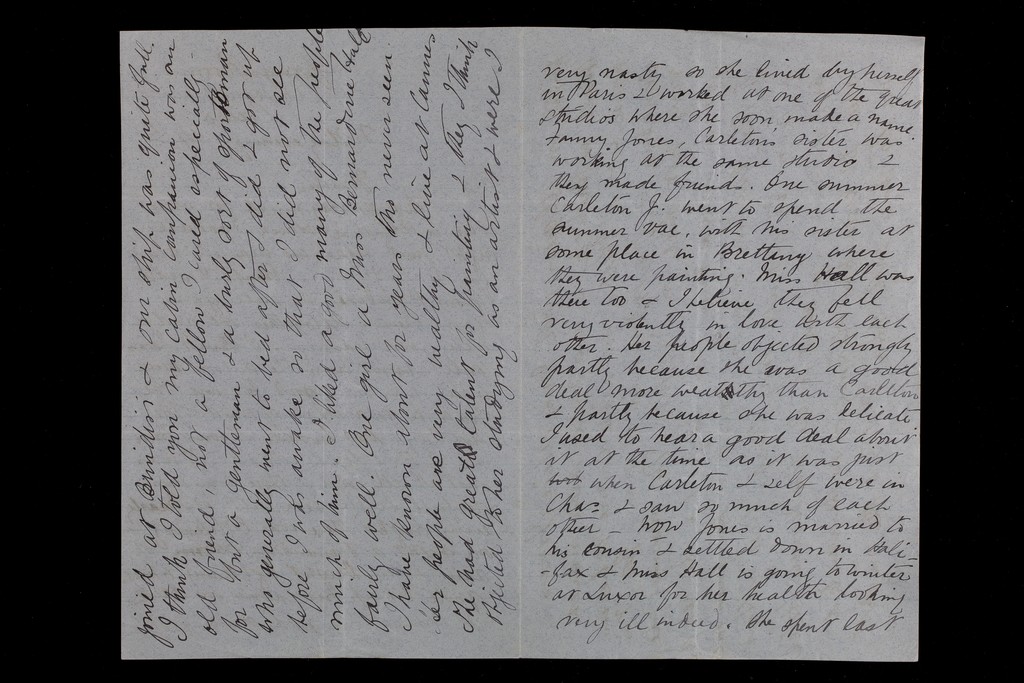 joined at Brindisi & our ship was quite full.
I think I told you my cabin companion was an
old friend, not a fellow I cared especially
for but a gentleman & a burly sort of man
who generally went to bed after I did & got up
before I was awake so that I did not see
much of him. I liked a good many of the people
fairly well. One girl a Miss Bernardine Hall
I have known about for years tho never seen.
Her people are very wealthy & live at Cannes
She had great talent for painting & they I think
objected to her studying as an artist & were I
very nasty so she lived by herself
in Paris & worked at one of the great
studios where she soon made a name.
Fanny Jones, Carleton's sister was
working at the same studio &
they made friends. One summer
Carleton J. went to spend the
summer vac. with his sister at
some place in Brettany where
they were painting. Miss Hall was
there too & I believe they fell
very violently in love with each
other. Her people objected strongly
partly because she was a good
deal more wealthy than Carleton
& partly because she was delicate
I used to hear a good deal about
it at the time as it was just
when Carleton & self were in
Chas. & saw so much of each
other - Now Jones is married to
his cousin & settled down in Hali-
-fax & Miss Hall is going to winter
at Luxor for her health looking
very ill indeed. She spent last